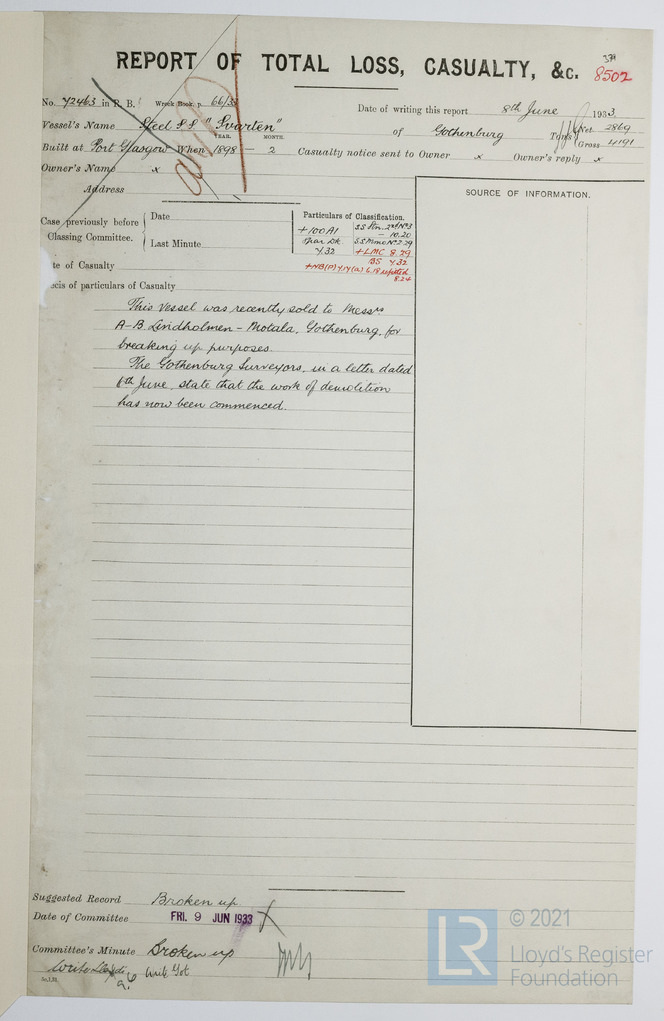 REPORT OF TOTAL LOSS, CASUALTY, &c. 8502
No. 72463 in R. B. Wreck Book, p. 66/33
Date of writing this report 8th June 1933
Vessel's Name Steel SS "Svarten"
of Gothenburg Tons Net 2869
Gross 4191
YEAR. MONTH.
Built at Port Glasgow When 1898 - 2
Casualty notice sent to Owner x Owner's reply x
Owner's Name x
Address
SOURCE OF INFORMATION.
Case previously before Classing Committee.
Date
Last Minute
Particulars of Classification.
+100A1
Spar Dk
4.32
- 10.20
+LMC 8.29
BS 4.32
8.24
te of Casualty
ecis of particulars of Casualty
This vessel was recently sold to Messrs
A-B Lindholmen - Motala, Gothenburg, for
breaking up purposes.
The Gothenburg Surveyors, in a letter dated
6th June, state that the work of demolition
has now been commenced.
Suggested Record Broken up.
Date of Committee FRI. 9 JUN 1933
Committee's Minute Broken up
Write Got
LR
© 2021
Lloyd's Register
Foundation